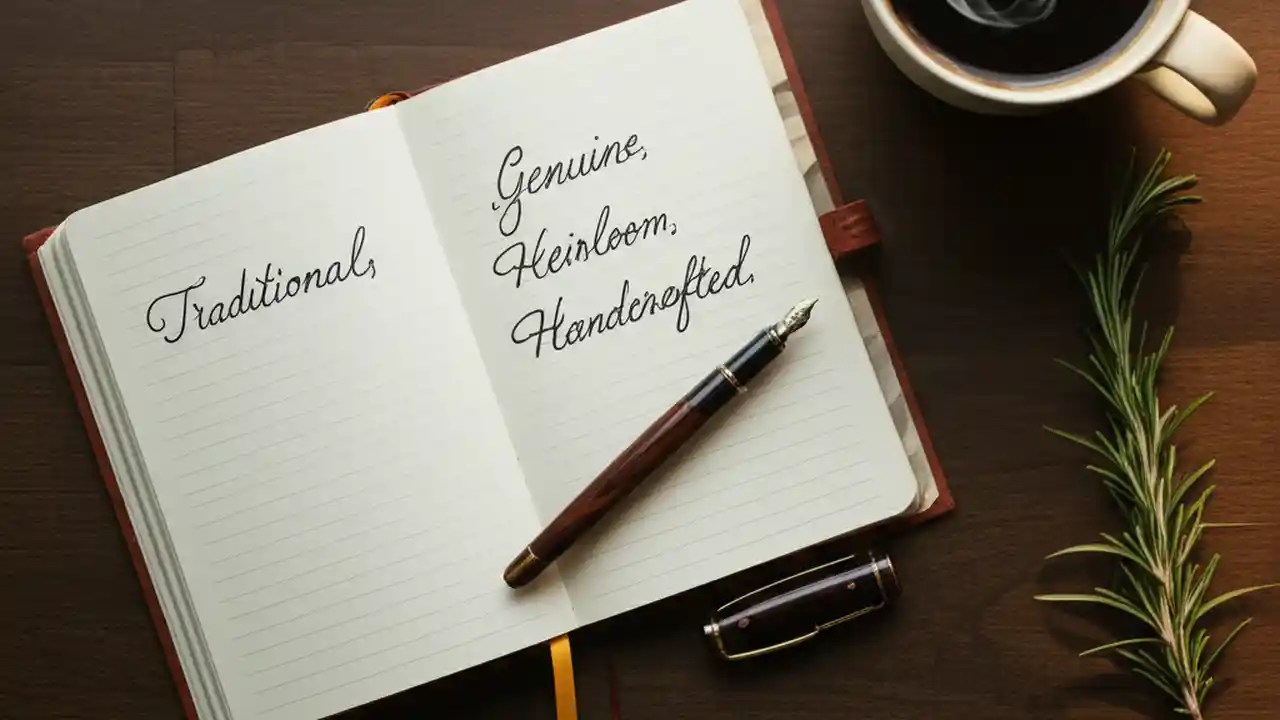 Traditional,
Genuine,
Heirloom,
Handcrafted.